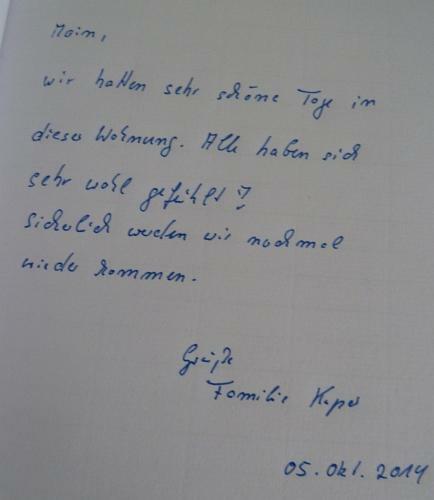 Moin,
wir hatten sehr schöne Tage in
dieser Wohnung. Alle haben sich
sehr wohl gefühlt!
Sicherlich werden wir nochmal
wieder kommen.
Grüße
Familie
05. Okt. 2014